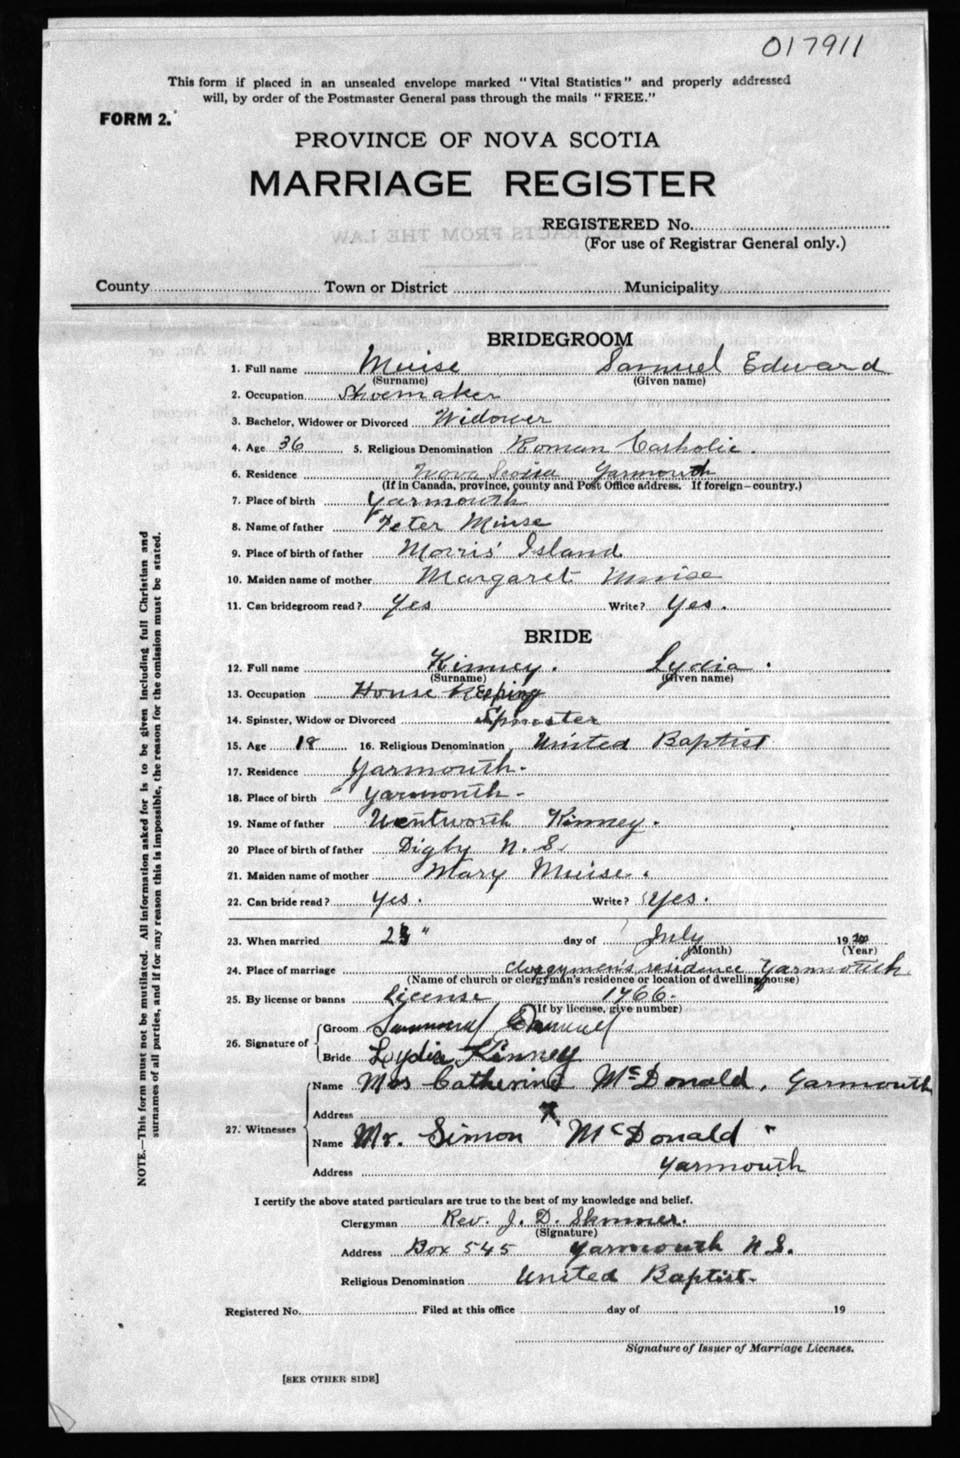 017911
This form if placed in an unsealed envelope marked "Vital Statistics" and properly addressed
will, by order of the Postmaster General pass through the mails "FREE."
FORM 2.
PROVINCE OF NOVA SCOTIA
MARRIAGE REGISTER
REGISTERED No.
(For use of Registrar General only.)
County Town or District Municipality
BRIDEGROOM
1. Full name Muise Samuel Edward
(Surname) (Given name)
2. Occupation Shoemaker
3. Bachelor, Widower or Divorced Widower
4. Age 36 5. Religious Denomination Roman Catholic.
6. Residence Nova Scotia Yarmouth
(If in Canada, province, county and Post Office address. If foreign—country.)
7. Place of birth Yarmouth
8. Name of father Peter Muise
9. Place of birth of father Morris' Island
10. Maiden name of mother Margaret Muise
11. Can bridegroom read? Yes Write? Yes.
BRIDE
12. Full name Kinney. Lydia.
(Surname) (Given name)
13. Occupation House Keeping
14. Spinster, Widow or Divorced Spinster
15. Age 18 16. Religious Denomination United Baptist
17. Residence Yarmouth.
18. Place of birth Yarmouth-
19. Name of father Wentworth Kinney.
20 Place of birth of father Digby N. S.
21. Maiden name of mother Mary Muise.
22. Can bride read? Yes. Write? Yes.
23. When married day of July 19
(Month) (Year)
24. Place of marriage clergymen's residence Yarmouth
(Name of church or clergyman's residence or location of dwelling house)
25. By license or banns License 1766-
(If by license, give number)
26. Signature of
Groom
Bride Lydia Kinney
27. Witnesses
Name Mrs Catherine McDonald, Yarmouth
Address
Name Mr. Simon McDonald "
Address Yarmouth
I certify the above stated particulars are true to the best of my knowledge and belief.
Clergyman Rev. J. D. Skinner.
(Signature)
Address Box 545 Yarmouth N.S.
Religious Denomination United Baptist-
Registered No. Filed at this office day of 19
Signature of Issuer of Marriage Licenses.
[SEE OTHER SIDE]
NOTE.—This form must not be mutilated. All information asked for is to be given including full Christian and
surnames of all parties, and if for any reason this is impossible, the reason for the omission must be stated.